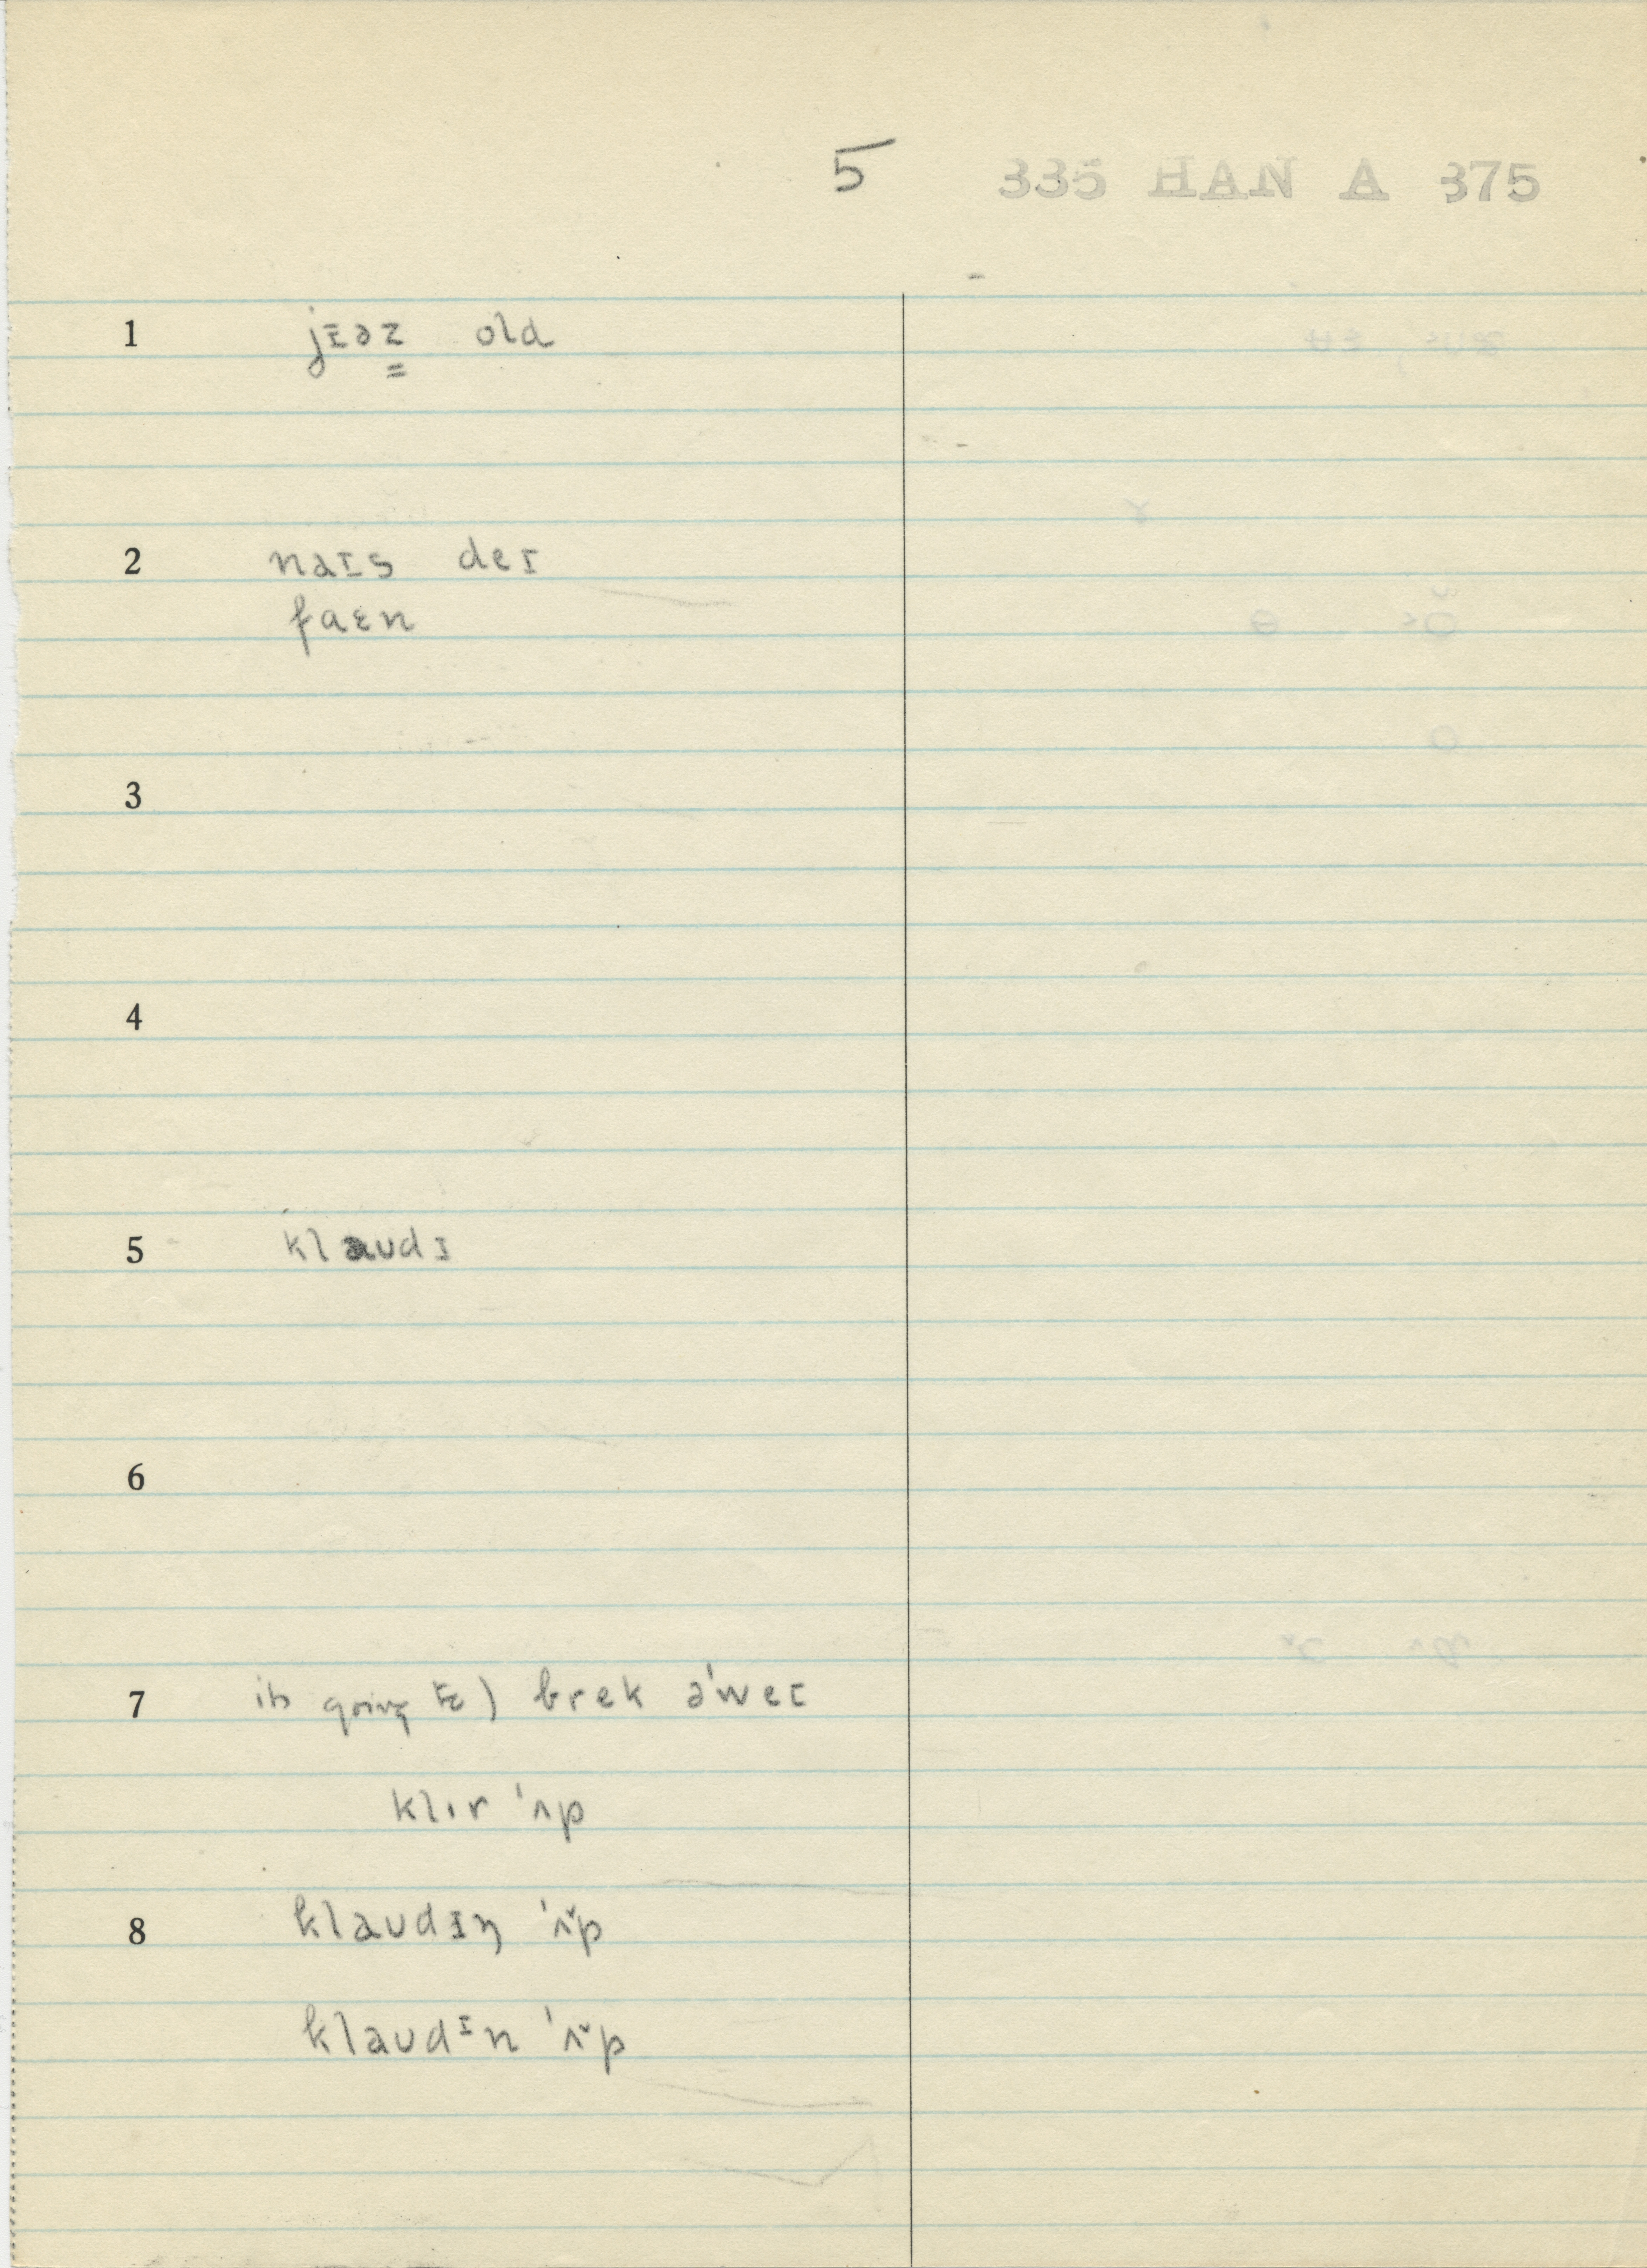 5 335 HAN A 375
1 jɪəz old
2 naɪs deɪ
faɛn
3
4
5 klaudɪ
6
7 its going to) brek ə'weɪ
klɪr 'ʌp
8 klaudɪŋ 'ʌ̌p
klaudᶦn 'ʌ̌p